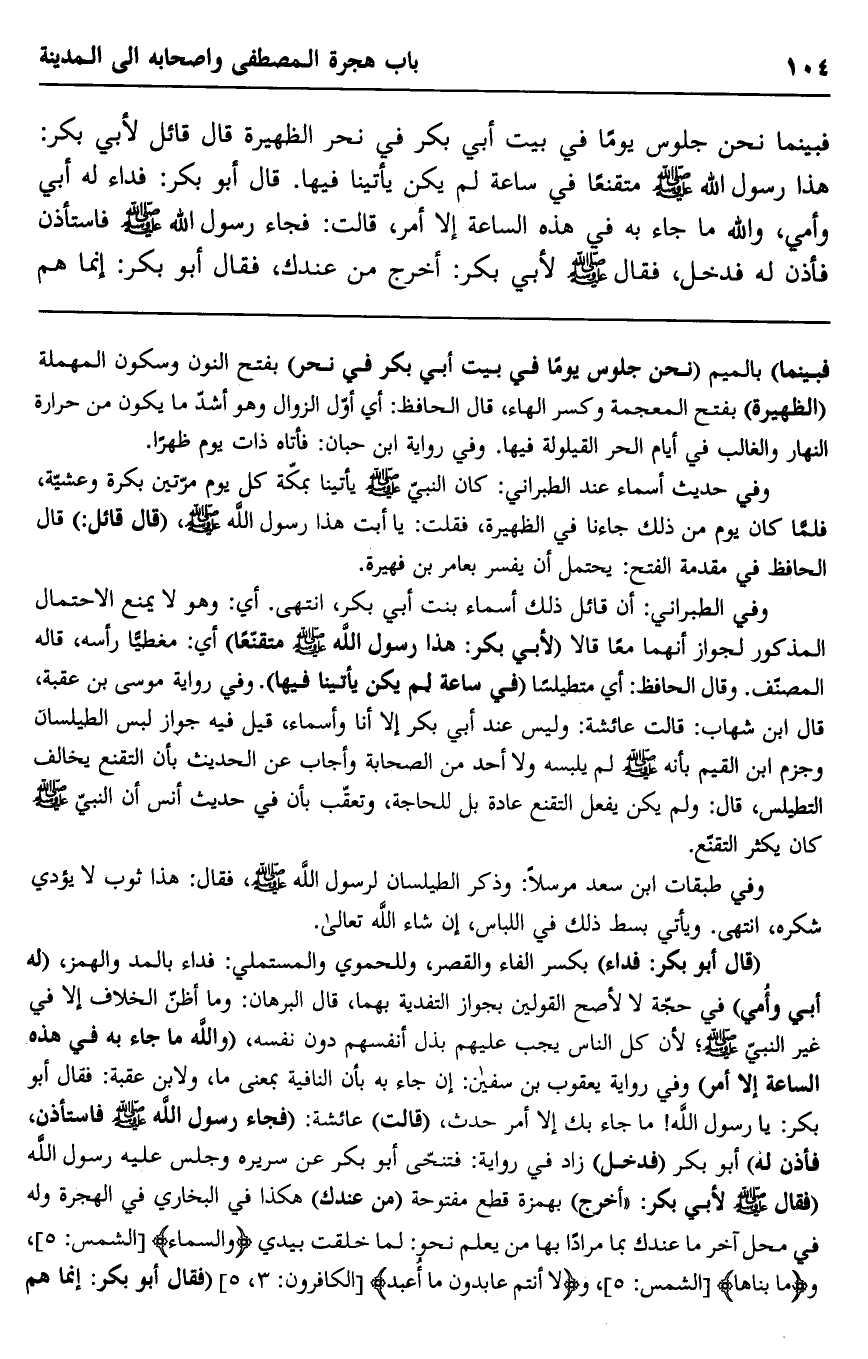 ١٠٤ باب هجرة المصطفى واصحابه الى المدينة
فبينما نحن جلوس يومًا في بيت أبي بكر في نحر الظهيرة قال قائل لأبي بكر:
هذا رسول الله ﷺ متقنعًا في ساعة لم يكن يأتينا فيها. قال أبو بكر: فداء له أبي
وأمي، والله ما جاء به في هذه الساعة إلا أمر، قالت: فجاء رسول الله ﷺ فاستأذن
فأذن له فدخل، فقال ﷺ لأبي بكر: أخرج من عندك، فقال أبو بكر: إنما هم
فبينما) بالميم (نحن جلوس يومًا في بيت أبي بكر في نحر) بفتح النون وسكون المهملة
(الظهيرة) بفتح المعجمة وكسر الهاء، قال الحافظ: أي أوّل الزوال وهو أشدّ ما يكون من حرارة
النهار والغالب في أيام الحر القيلولة فيها. وفي رواية ابن حبان: فأتاه ذات يوم ظهرًا.
وفي حديث أسماء عند الطبراني: كان النبيّ ﷺ يأتينا بمكّة كل يوم مرّتين بكرة وعشيّة،
فلمّا كان يوم من ذلك جاءنا في الظهيرة، فقلت: يا أبت هذا رسول اللَّه ﷺ، (قال قائل:) قال
الحافظ في مقدمة الفتح: يحتمل أن يفسر بعامر بن فهيرة.
وفي الطبراني: أن قائل ذلك أسماء بنت أبي بكر، انتهى. أي: وهو لا يمنع الاحتمال
المذكور لجواز أنهما معًا قالا (لأبي بكر: هذا رسول اللَّه ﷺ متقنّعًا) أي: مغطيًّا رأسه، قاله
المصنّف. وقال الحافظ: أي متطيلسًا (في ساعة لم يكن يأتينا فيها). وفي رواية موسى بن عقبة،
قال ابن شهاب: قالت عائشة: وليس عند أبي بكر إلا أنا وأسماء، قيل فيه جواز لبس الطيلسان
وجزم ابن القيم بأنه ﷺ لم يلبسه ولا أحد من الصحابة وأجاب عن الحديث بأن التقنع يخالف
التطيلس، قال: ولم يكن يفعل التقنع عادة بل للحاجة، وتعقّب بأن في حديث أنس أن النبيّ ﷺ
كان يكثر التقنّع.
وفي طبقات ابن سعد مرسلاً: وذكر الطيلسان لرسول اللَّه ﷺ، فقال: هذا ثوب لا يؤدي
شكره، انتهى. ويأتي بسط ذلك في اللباس، إن شاء اللَّه تعالىٰ.
(قال أبو بكر: فداء) بكسر الفاء والقصر، وللحموي والمستملي: فداء بالمد والهمز، (له
أبي وأُمي) في حجّة لا لأصح القولين بجواز التفدية بهما، قال البرهان: وما أظنّ الخلاف إلا في
غير النبيّ ﷺ؛ لأن كل الناس يجب عليهم بذل أنفسهم دون نفسه، (واللَّه ما جاء به في هذه
الساعة إلا أمر) وفي رواية يعقوب بن سفيٰن: إن جاء به بأن النافية بمعنى ما، ولابن عقبة: فقال أبو
بكر: يا رسول اللَّه! ما جاء بك إلا أمر حدث، (قالت) عائشة: (فجاء رسول اللَّه ﷺ فاستأذن،
فأذن له) أبو بكر (فدخل) زاد في رواية: فتنحّى أبو بكر عن سريره وجلس عليه رسول اللَّه
(فقال ﷺ لأبي بكر: «أخرج) بهمزة قطع مفتوحة (من عندك) هكذا في البخاري في الهجرة وله
في محل آخر ما عندك بما مرادًا بها من يعلم نحو: لما خلقت بيدي ﴿والسماء﴾ [الشمس: ٥]،
و﴿ما بناها﴾ [الشمس: ٥]، و﴿لا أنتم عابدون ما أُعبد﴾ [الكافرون: ٣، ٥] (فقال أبو بكر: إنما هم